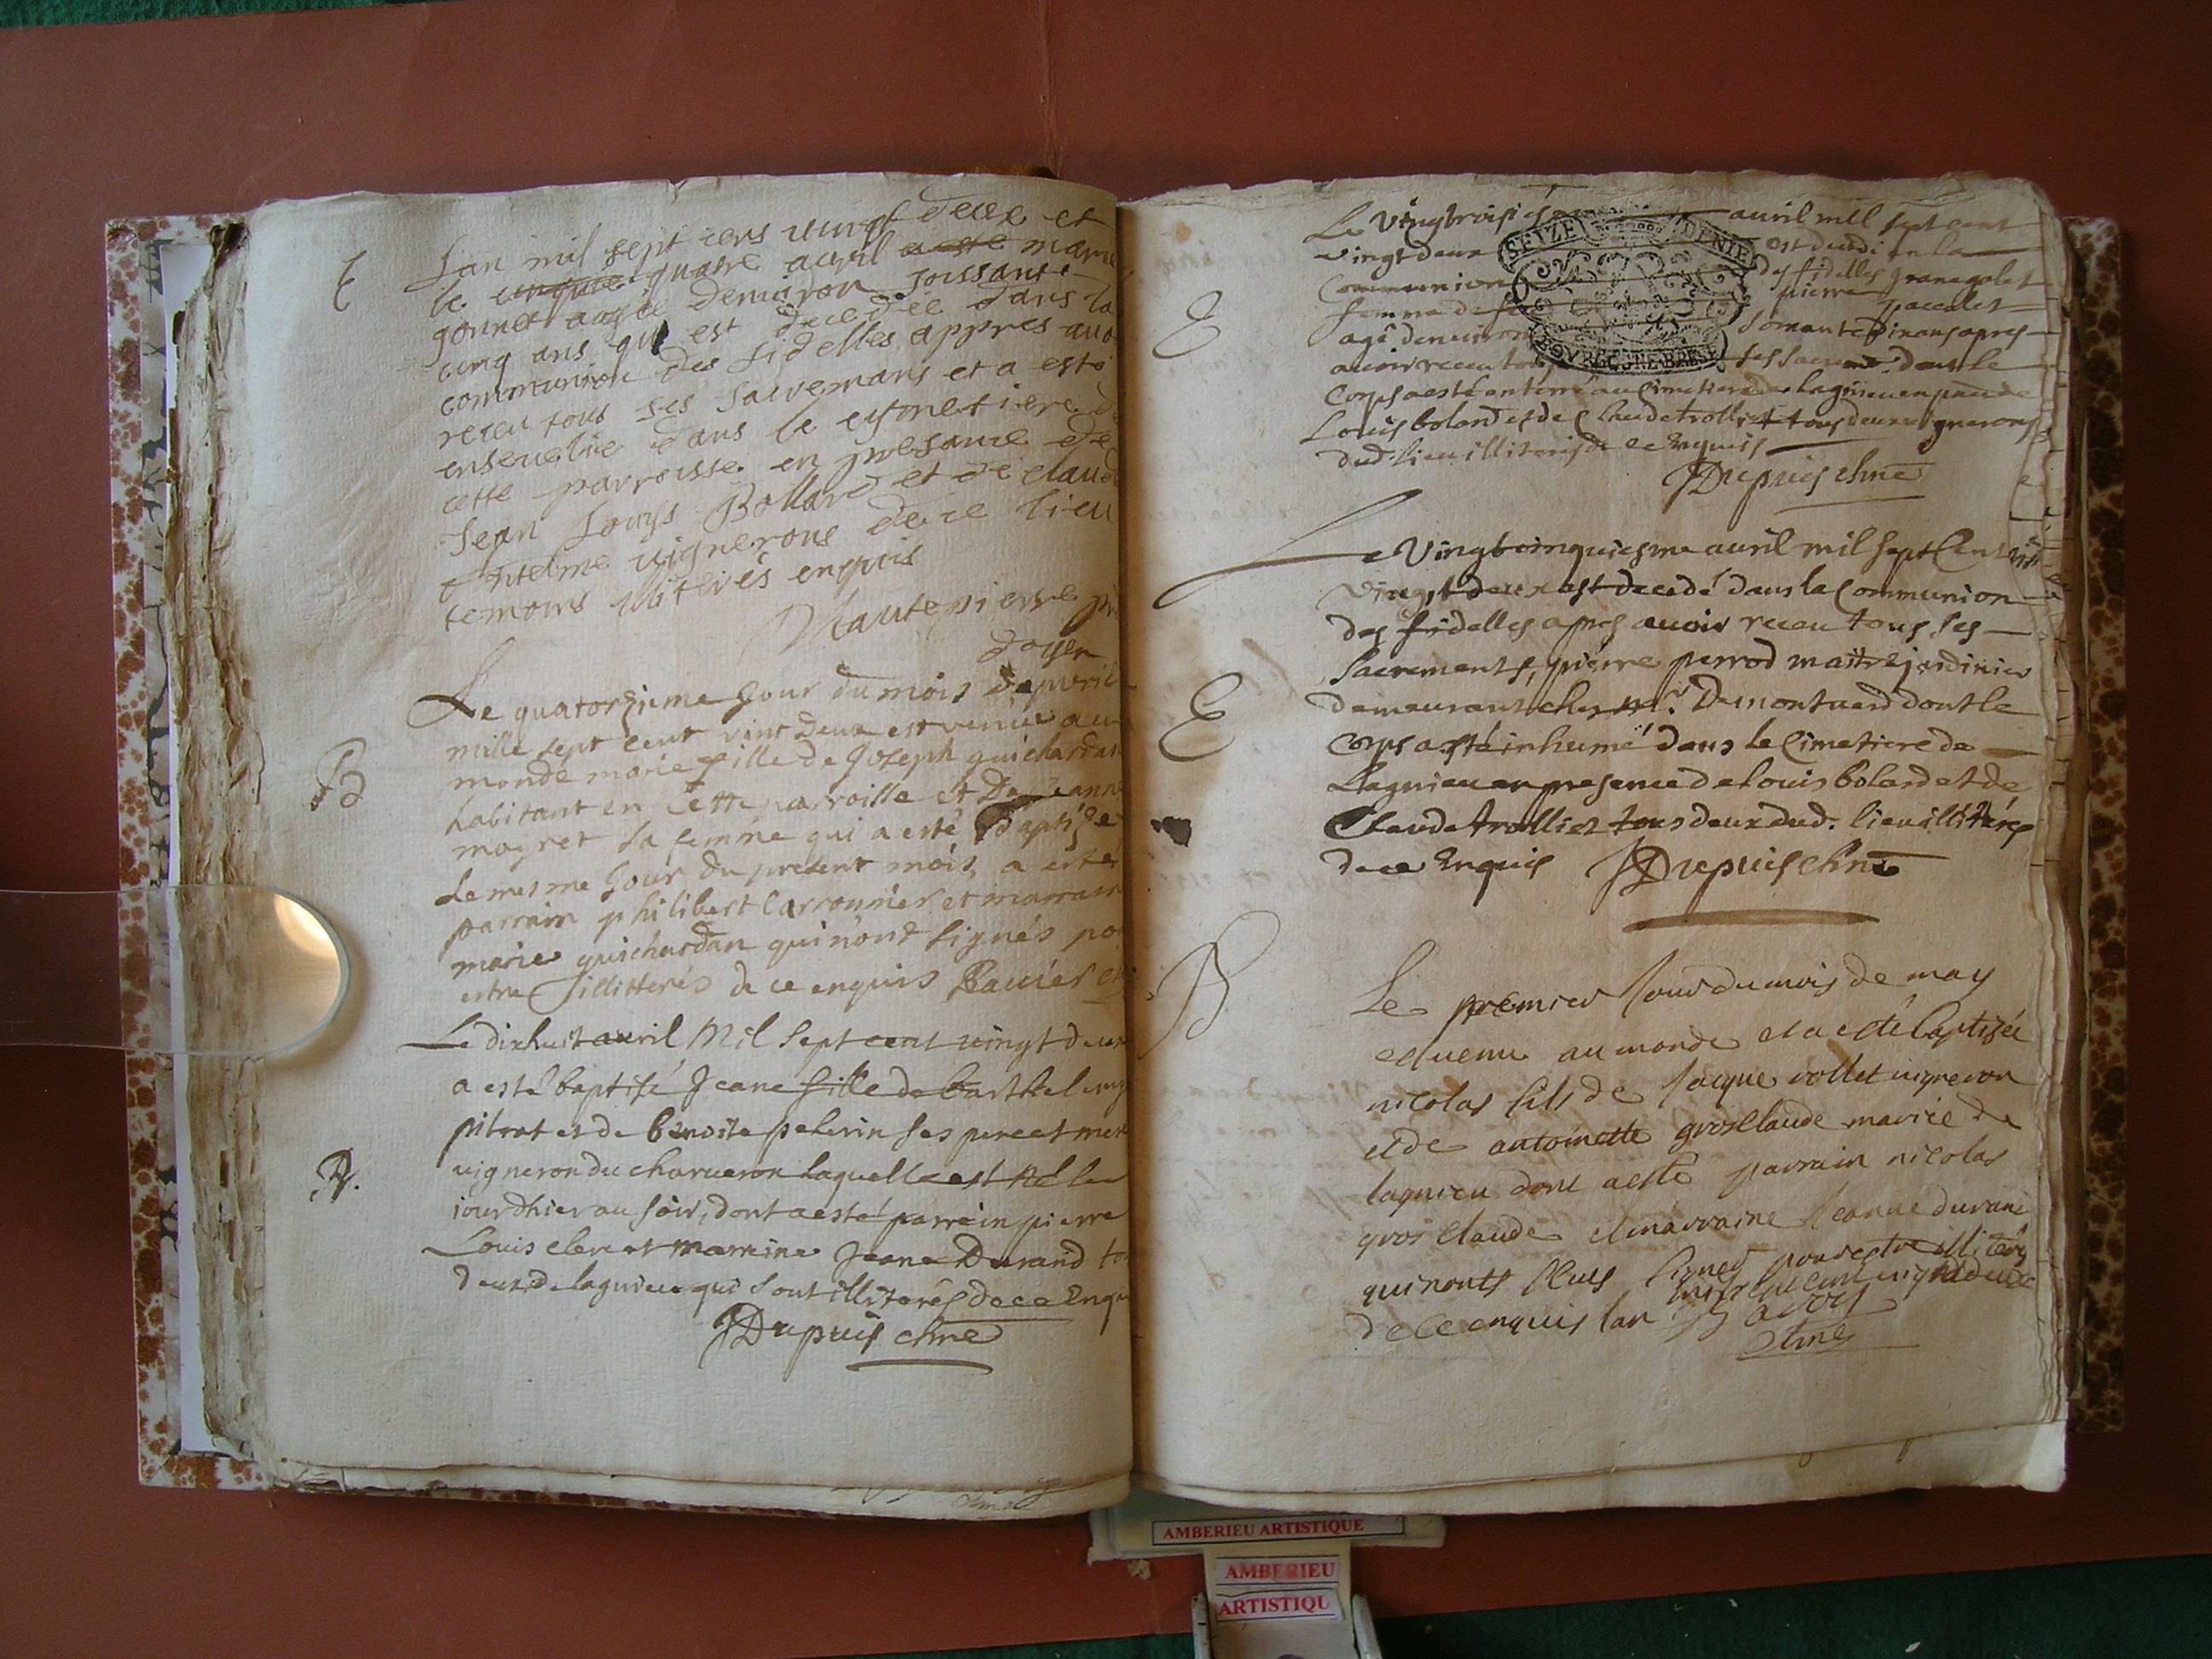 E
Lan mil sept cens vingt deux et
le cinquie quatre avril a esté marie
gonnet aagée denuiron soissante
cinq ans qui est decedee dans la
communion des fidelles appres auo
receu tous ses sacremans et a esté
enseuelie dans le cymetiere d
cette parroisse en presance de
Jean Louys Bollard et de claude
Antelme uignerons de ce lieu
temoins illiterés enquis
Hautepierre
doyen
B
Le quatorzieme Jour du mois D'apvril
mille sept cent vint Deux est venue au
monde marie fille de Joseph guichardan
habitant en Cette parroisse et De Jeanne
magret sa femme qui a esté Baptisée
Le mesme Jour du present mois, a esté
parrain philibert Carronnier et marrain
marie guichardan qui n'ont signés po
estre illitterés de ce enquis
B.
Le dixhuit avril Mil Sept cent vingt deux
a esté baptisé Jeane fille de barthelemy
pitrat et de benoite pelerin ses pere et mere
vigneron du charueron laquelle est né le
iour dhier au soir, dont a esté parrein pierre
Louis clerc et marreine Jeane Durand to
deux de lagnieu qui sont illiterés de ce Enqu
JDupuis chne
E
Le Vingtroisiesme avril mil sept cent
vingt deux est decedé en la
Communion des fidelles
femme de pierre pacalet
agé denuiron soixante dix ans apres
auoir receu tous ses sacrem. dont le
Corps a esté enterré au Cimetiere de lagnieu en pnce de
Louis bolard et de Claude trolliet tous deux vignerons
dud. lieu illiterés de ce Enquis
JDupuis chne
E
Le Vingtcinquiesme avril mil sept Cent
vingt deux est decedé dans la Communion
des fidelles apres avoir receu tous ses
Sacrements, pierre perrod maitre jardinier
demeurant chez mr. Demontuerd dont le
Corps a esté inhumé dans le Cimetiere de
Lagnieu en presence de Louis bolard et de
Claude trolliet tous deux dud. lieu illiterés
de ce Enquis JDupuis chne
B
Le premier Jour du mois de may
est venu au monde et a esté baptizée
nicolas fils de Jacque vollet uigneron
et de antoinette grosclaude mariée de
lagnieu dont a esté parrain nicolas
gros claude et marraine Jeanne durand
qui nonts sceus signer pour estre illiterés
de ce enquis lan mil sept cent vingt deux
chne
SEIZE DENIE
BOVRGOGNE BRESSE
AMBERIEU ARTISTIQUE
AMBERIEU
ARTISTIQU